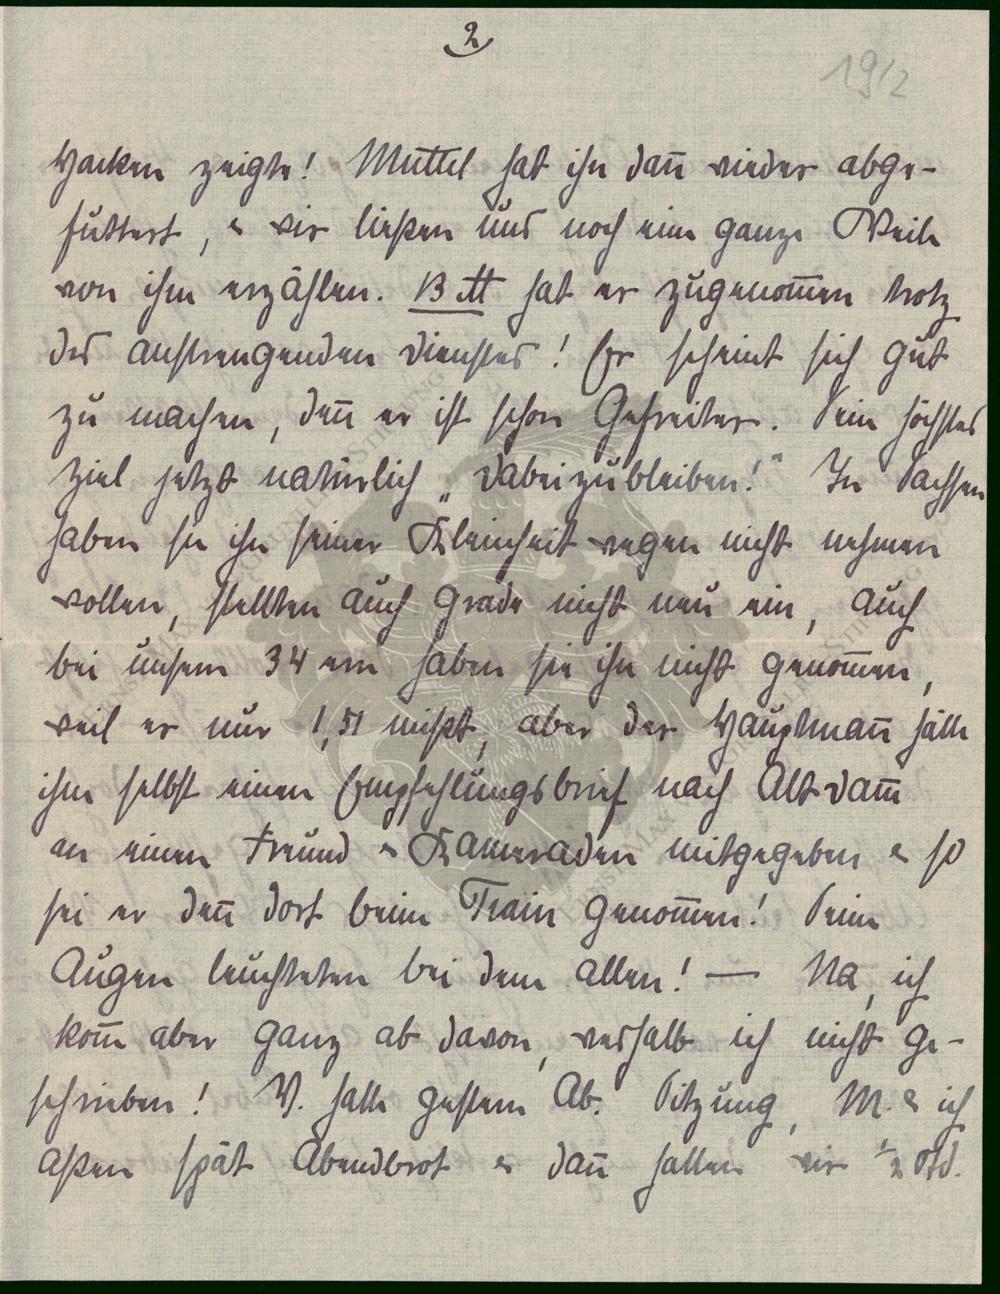 2
19/2
Hacken zeigte! Muttel hat ihn dan̄ wieder abge-
futtert, & wir ließen uns noch eine ganze Weile
von ihm erzählen. 13 ℔ hat er zugenom̄en trotz
des anstrengenden Dienstes! Er scheint sich gut
zu machen, den̄ er ist schon Gefreiter. Sein höchstes
Ziel jetzt natürlich „dabeizubleiben!" In Sachsen
haben sie ihn seiner Kleinheit wegen nicht nehmen
wollen, stellten auch grade nicht neu ein, auch
bei unsern 34 ern haben sie ihn nicht genom̄en,
weil er nur 1,51 mißt, aber der Hauptman̄ hätte
ihm selbst einen Empfehlungsbrief nach Alt dam̄
an einen Freund & Kameraden mitgegeben & so
sei er den̄ dort beim Train genom̄en! Seine
Augen leuchteten bei dem allen! — Na, ich
kom̄ aber ganz ab davon, weshalb ich nicht ge-
schrieben! V. hatte gestern Ab. Sitzung, M. & ich
aßen spät Abendbrot & dan̄ hatten wir ½ Std.